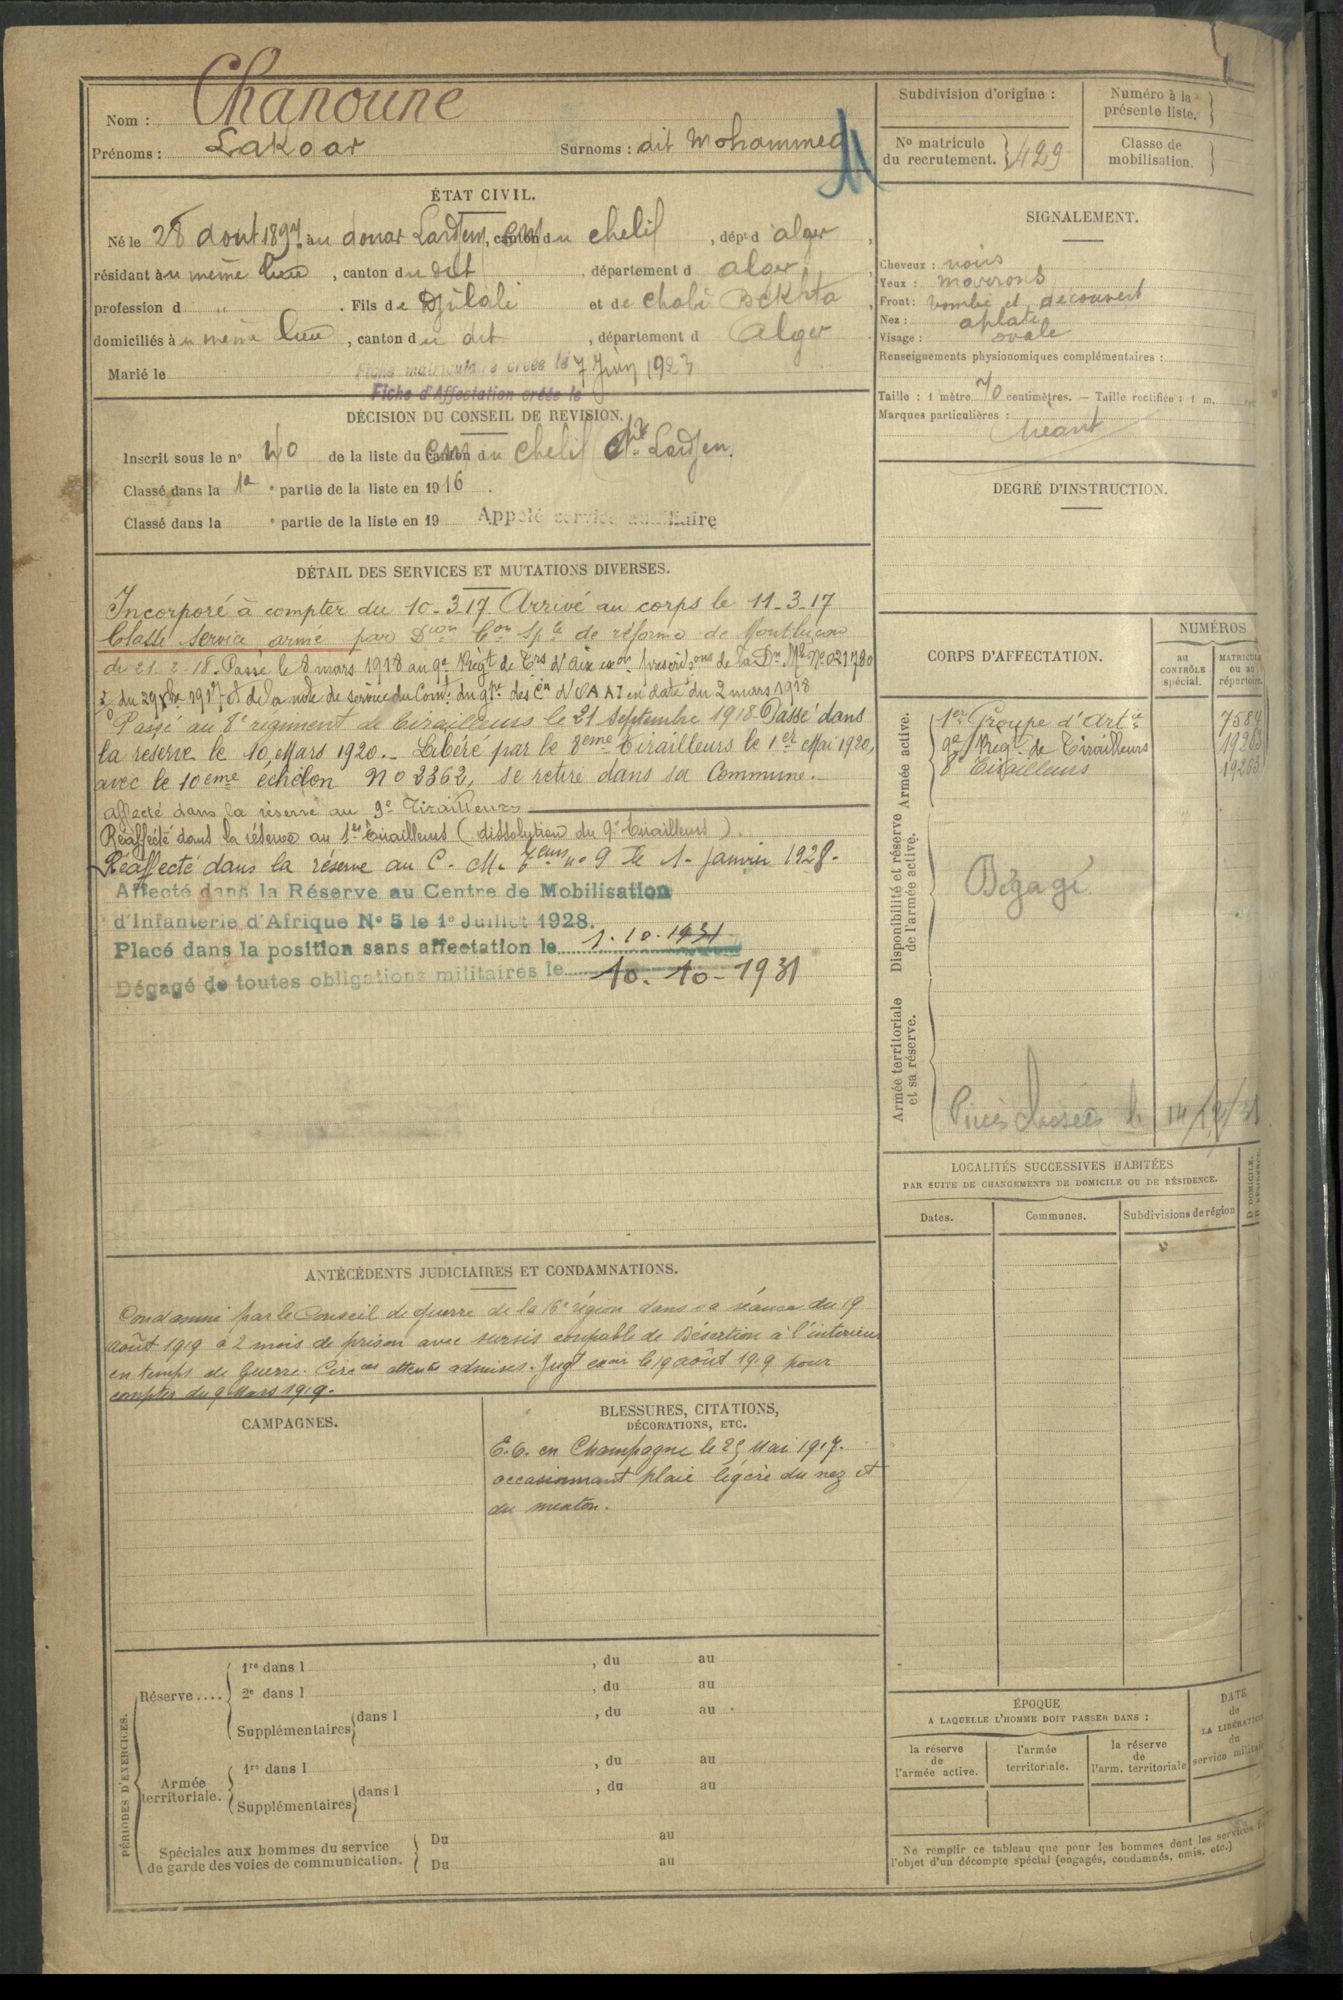 Nom : Chanoune
Prénoms : Lakdar Surnoms : dit Mohammed
Subdivision d'origine :
Numéro à la présente liste.
N° matricule du recrutement. 429
Classe de mobilisation.
ÉTAT CIVIL.
Né le 28 aout 1897, au douar Lardjem, canton du chelif, dépt d alger,
résidant au même lieu, canton du dit, département d alger,
profession d " . Fils de Djilali et de Chabi Bekhta,
domiciliés au même lieu, canton du dit, département d Alger
Marié le
Fiche matriculaire créée le 7 Juin 1923
Fiche d'Affectation créée le
DÉCISION DU CONSEIL DE REVISION.
Inscrit sous le n° 40 de la liste du canton du chelif Lardjem.
Classé dans la 1e partie de la liste en 1916.
Classé dans la e partie de la liste en 19 Appelé service auxiliaire
DÉTAIL DES SERVICES ET MUTATIONS DIVERSES.
Incorporé à compter du 10-3-17 Arrivé au corps le 11-3-17
Classé service armé par Don Con Sple de réforme de Montluçon
du 21.2.18. Passé le 8 mars 1918 au 9e Régt de Trs d'Aix exon prescriptons de la Dn Mle N° 021780
du 29 Xbre 1917 et de la note de service du Comt du gpe des Cn d'OAAT en date du 2 mars 1918
Passé au 8e regiment de tirailleurs le 21 Septembre 1918 Passé dans
la reserve le 10 Mars 1920. - Libéré par le 8eme Tirailleurs le 1er Mai 1920,
avec le 10eme échelon N° 2362, se retire dans sa Commune.-
affecté dans la réserve au 9e Tirailleurs
Réaffecté dans la réserve au 1er Tirailleurs (dissolution du 9e tirailleurs).
Réaffecté dans la réserve au C. M. n° 9 le 1- Janvier 1928-
Affecté dans la Réserve au Centre de Mobilisation
d'Infanterie d'Afrique N° 5 le 1e Juillet 1928.
Placé dans la position sans affectation le 1.10.1931
Dégagé de toutes obligations militaires le 10-10-1931
ANTÉCÉDENTS JUDICIAIRES ET CONDAMNATIONS.
Condamné par le Conseil de guerre de la 16e région dans sa séance du 19
août 1919 à 2 mois de prison avec sursis coupable de Désertion à l'interieur
en temps de Guerre. Circces attentes admises. Jugt exoir le 19 août 1919 pour
compter du 9 Mars 1919.
CAMPAGNES.
BLESSURES, CITATIONS,
DÉCORATIONS, ETC.
E.C. en Champagne le 25 Mai 1917.
occasionnant plaie légère du nez et
du menton.
PÉRIODES D'EXERCICES.
Réserve....
1re dans l , du au
2e dans l , du au
Supplémentaires dans l , du au
Armée territoriale.
1re dans l , du au
Supplémentaires dans l , du au
Spéciales aux hommes du service
de garde des voies de communication.
Du au
Du au
SIGNALEMENT.
Cheveux : noirs
Yeux : marrons
Front : bombé et découvert
Nez : aplati
Visage : ovale
Renseignements physionomiques complémentaires :
Taille : 1 mètre 70 centimètres. — Taille rectifiée : 1 m.
Marques particulières :
Néant
DEGRÉ D'INSTRUCTION.
CORPS D'AFFECTATION.
NUMÉROS
au CONTRÔLE spécial.
MATRICULE ou au répertoire.
Armée active.
1er Groupe d'Artie 7584
9e Rég. de Tirailleurs 19263
8e Tirailleurs 19263
Disponibilité et réserve de l'armée active.
Dégagé
Armée territoriale et sa réserve.
Pièces classées le 14/12/31
LOCALITÉS SUCCESSIVES HABITÉES
PAR SUITE DE CHANGEMENTS DE DOMICILE OU DE RÉSIDENCE.
Dates. Communes. Subdivisions de région
D. DOMICILE. R. RÉSIDENCE.
ÉPOQUE
A LAQUELLE L'HOMME DOIT PASSER DANS :
DATE de LA LIBÉRATION du service militaire
la réserve de l'armée active.
l'armée territoriale.
la réserve de l'arm. territoriale
Ne remplir ce tableau que pour les hommes dont les services
l'objet d'un décompte spécial (engagés, condamnés, omis, etc.)